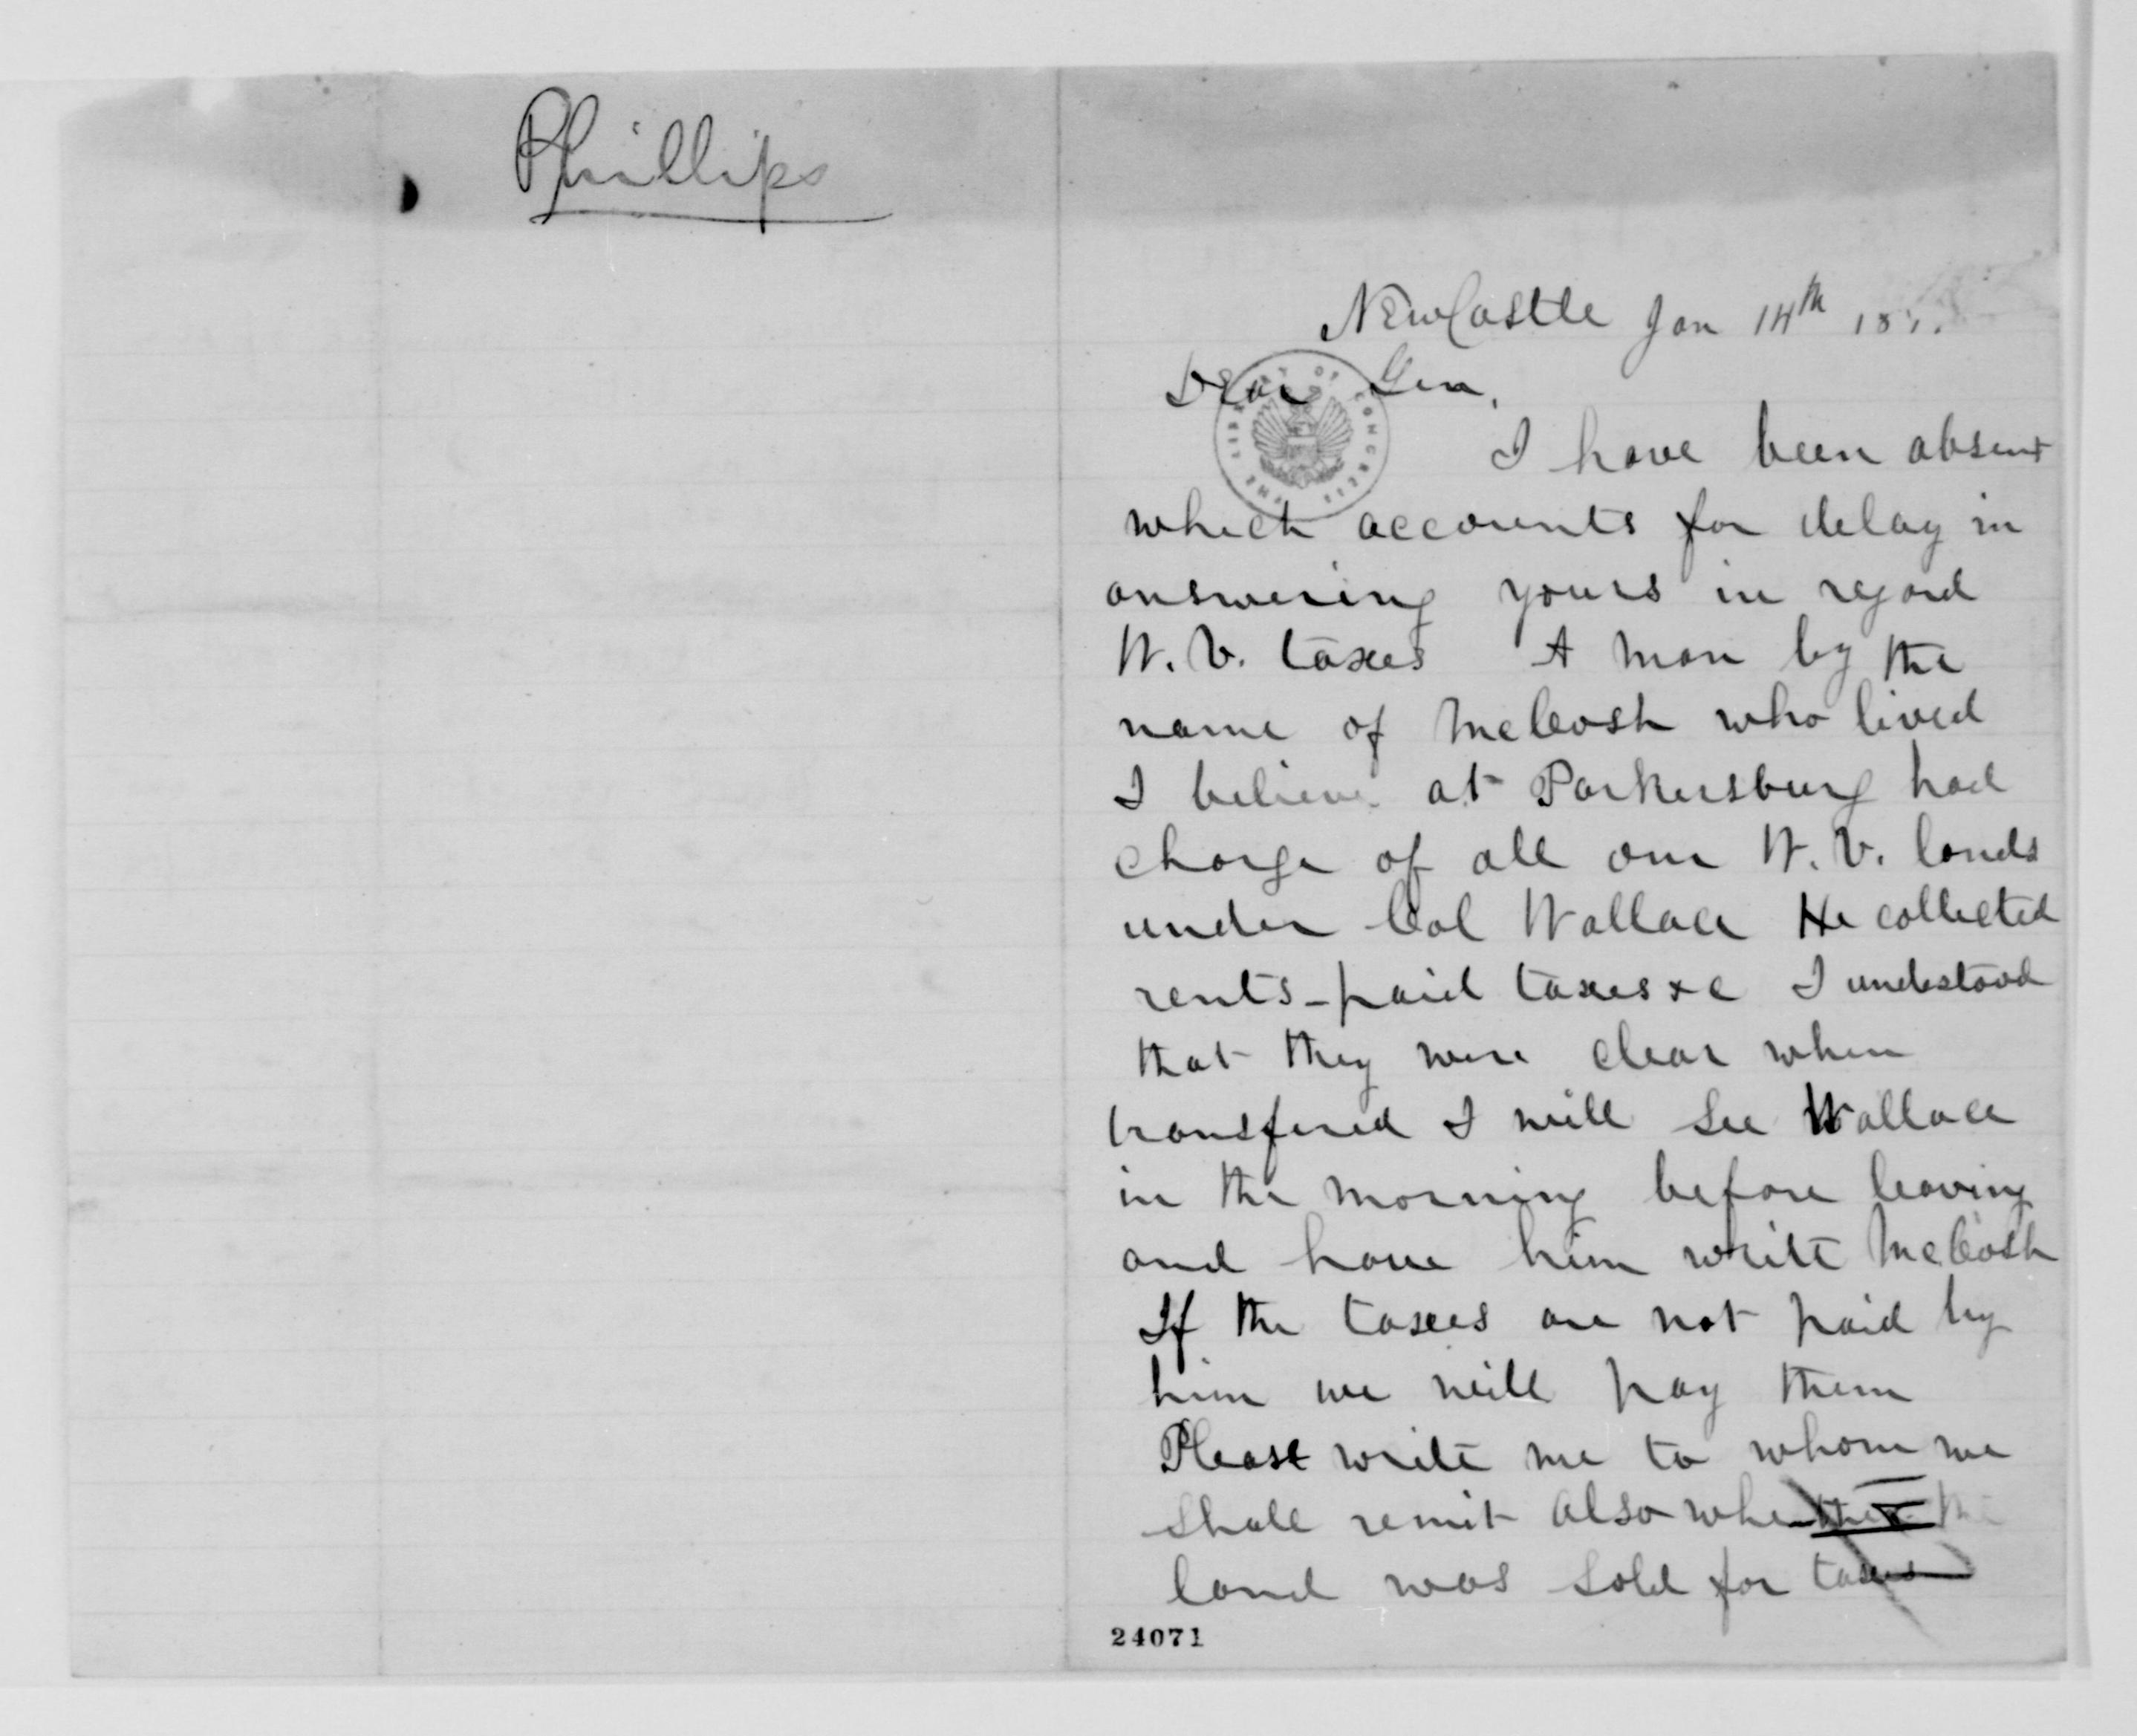 Phillips
NewCastle Jan 14th 18
Dear Gen.
THE LIBRARY OF CONGRESS
I have been absent
which accounts for delay in
answering yours in regard
W. V. taxes A man by the
name of McCosh who lived
I believe at Parkersburg had
charge of all our W. V. lands
under Col Wallace He collected
rents - paid taxes &c I understood
that they were clear when
transfered I will see Wallace
in the morning before leaving
and have him write McCosh
If the taxes are not paid by
him we will pay them
Please write me to whom we
shall remit also whether the
land was sold for taxes
24071